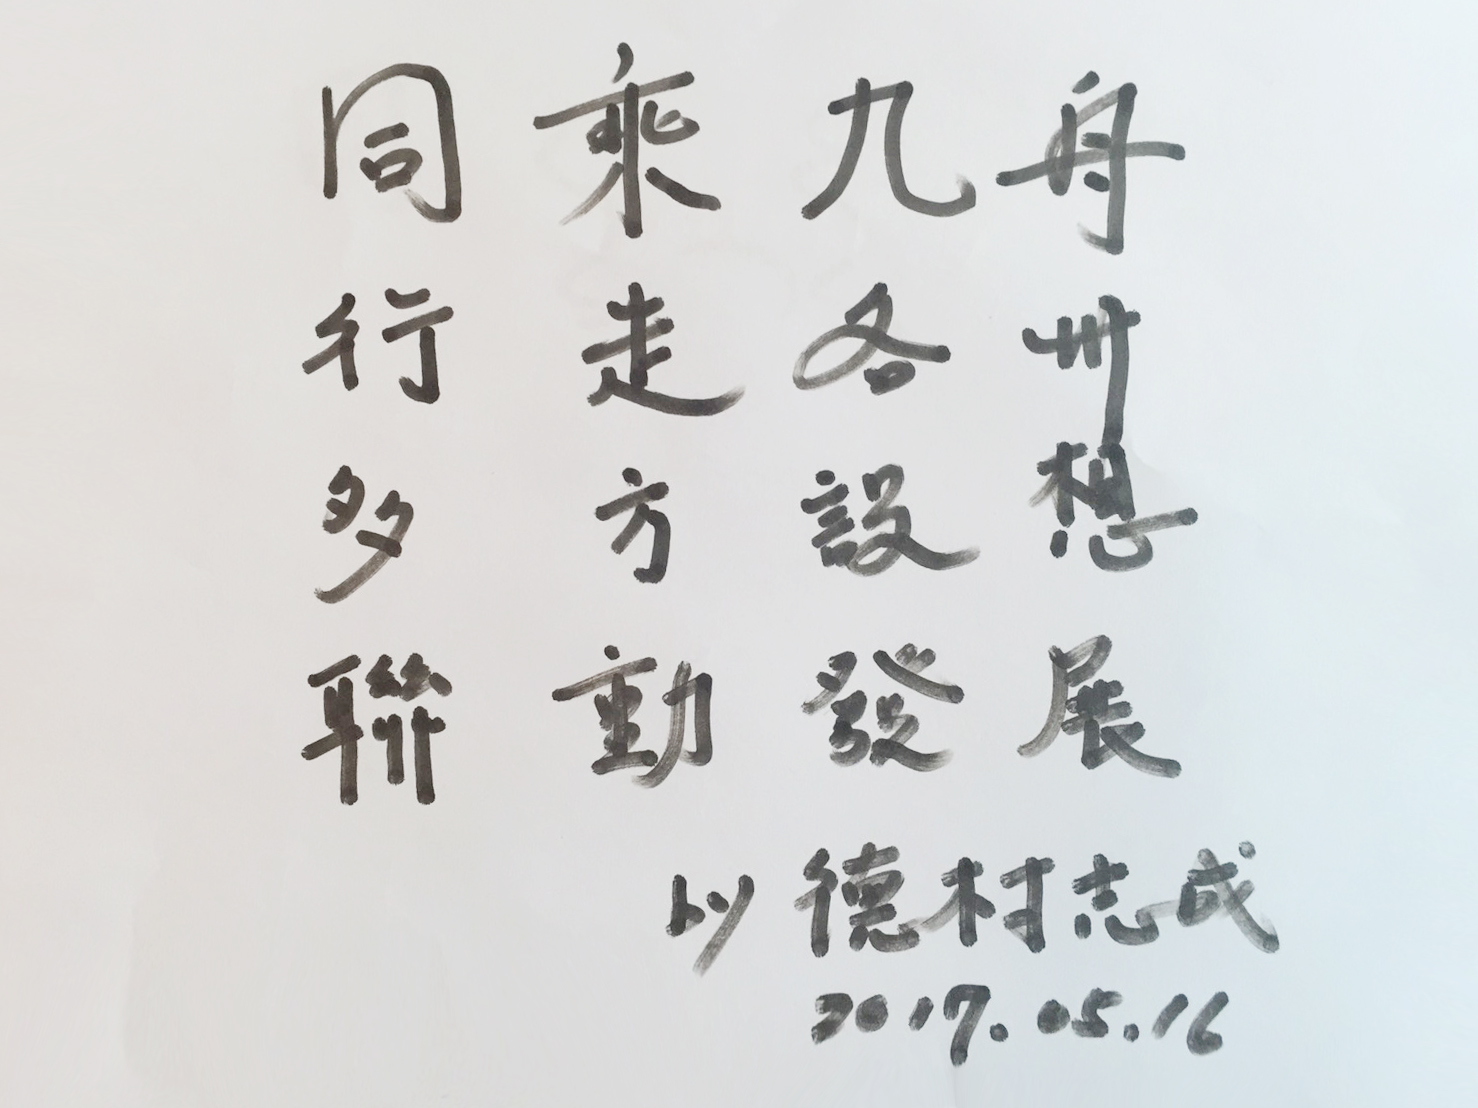 同乘九舟
行走各州
多方設想
聯動發展
以德村志成
2017.05.16